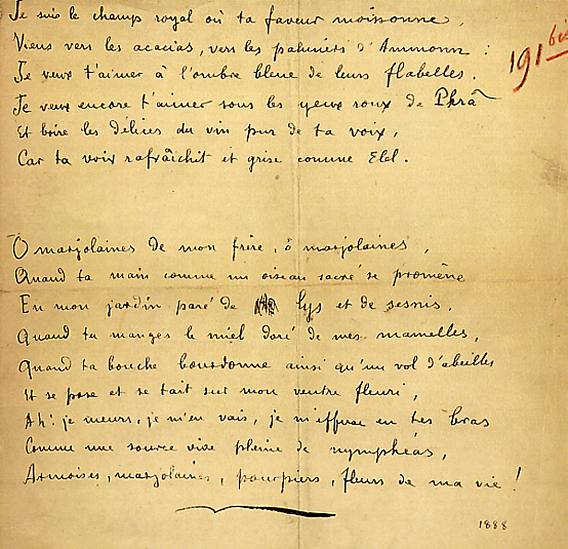 Je suis le champs royal où ta faveur moissonne,
Viens vers les acacias, vers les palmiers d'Ammonn :
191 bis
Je veux t'aimer à l'ombre bleue de leurs flabelles.
Je veux encore t'aimer sous les yeux roux de Phrâ
Et boire les délices du vin pur de ta voix,
Car ta voix rafraîchit et grise comme Elel.
O marjolaines de mon frère, ô marjolaines,
Quand ta main comme un oiseau sacré se promène
En mon jardin paré de lys et de sesnis,
Quand tu manges le miel doré de mes mamelles,
Quand ta bouche bourdonne ainsi qu'un vol d'abeilles
Et se pose et se tait sur mon ventre fleuri,
Ah! je meurs, je m'en vais, je m'effuse en tes bras
Comme une source vive pleine de nymphéas,
Armoises, marjolaines, pourpiers, fleurs de ma vie !
1888